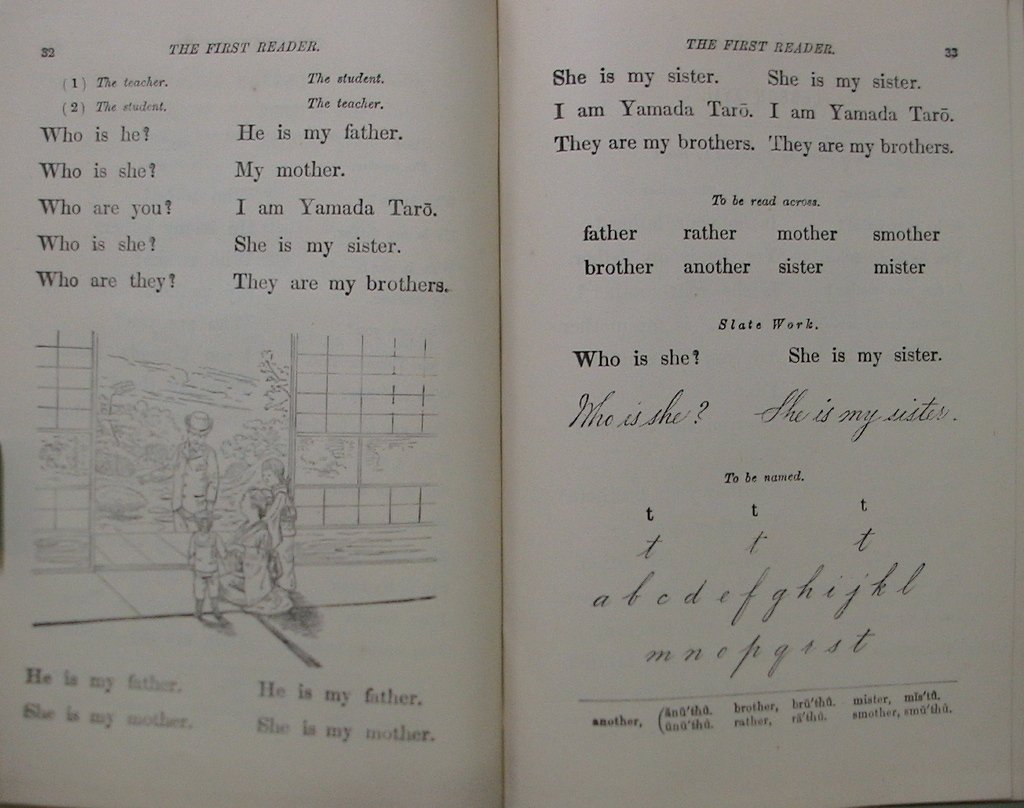 32 THE FIRST READER.
(1) The teacher. The student.
(2) The student. The teacher.
Who is he? He is my father.
Who is she? My mother.
Who are you? I am Yamada Tarō.
Who is she? She is my sister.
Who are they? They are my brothers.
He is my father. He is my father.
She is my mother. She is my mother.
THE FIRST READER. 33
She is my sister. She is my sister.
I am Yamada Tarō. I am Yamada Tarō.
They are my brothers. They are my brothers.
To be read across.
father rather mother smother
brother another sister mister
Slate Work.
Who is she? She is my sister.
Who is she? She is my sister.
To be named.
t t t
t t t
a b c d e f g h i j k l
m n o p q r s t
another, (ănŭ'thŭ. brother, brŭ'thŭ. mister, mĭs'tŭ.
(ŭnŭ'thŭ. rather, rä'thŭ. smother, smŭ'thŭ.